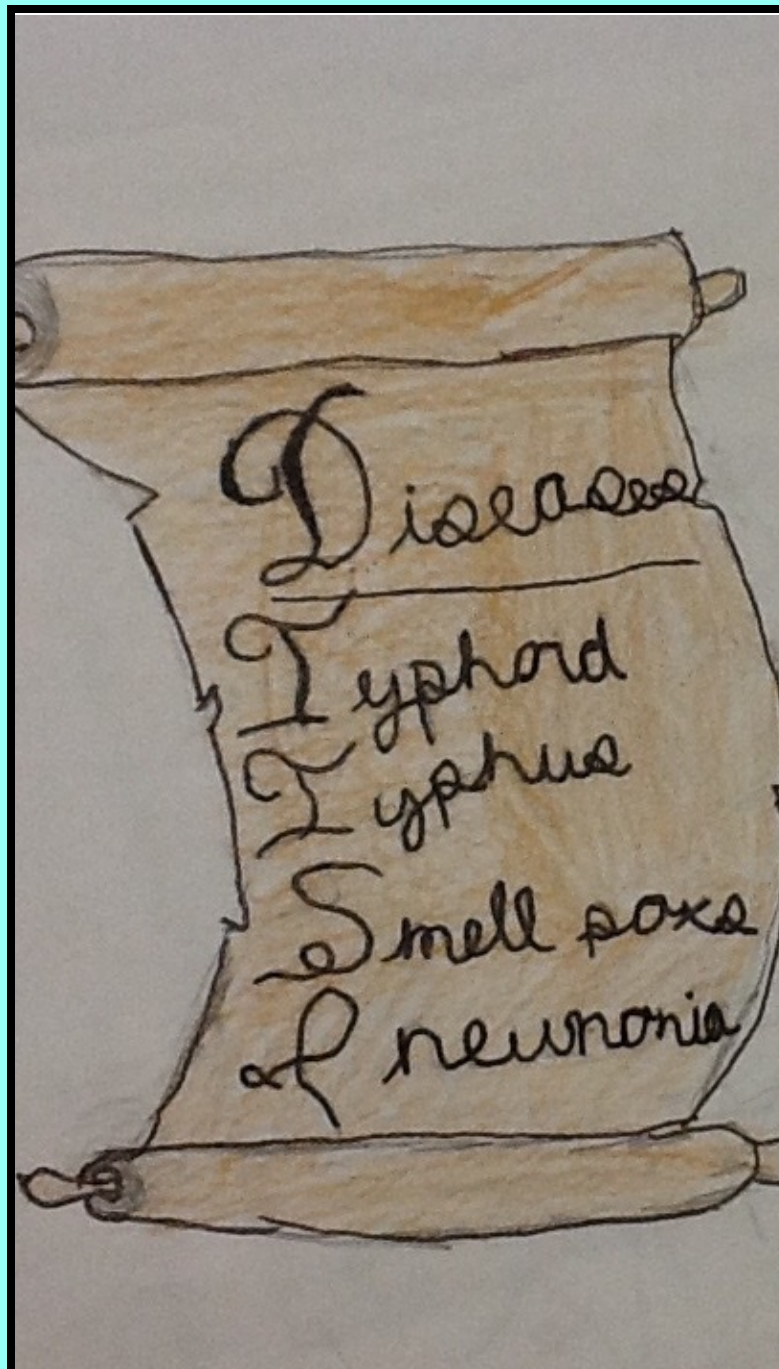 Diseases
Typhoid
Typhus
Smell poxs
Pneunonia